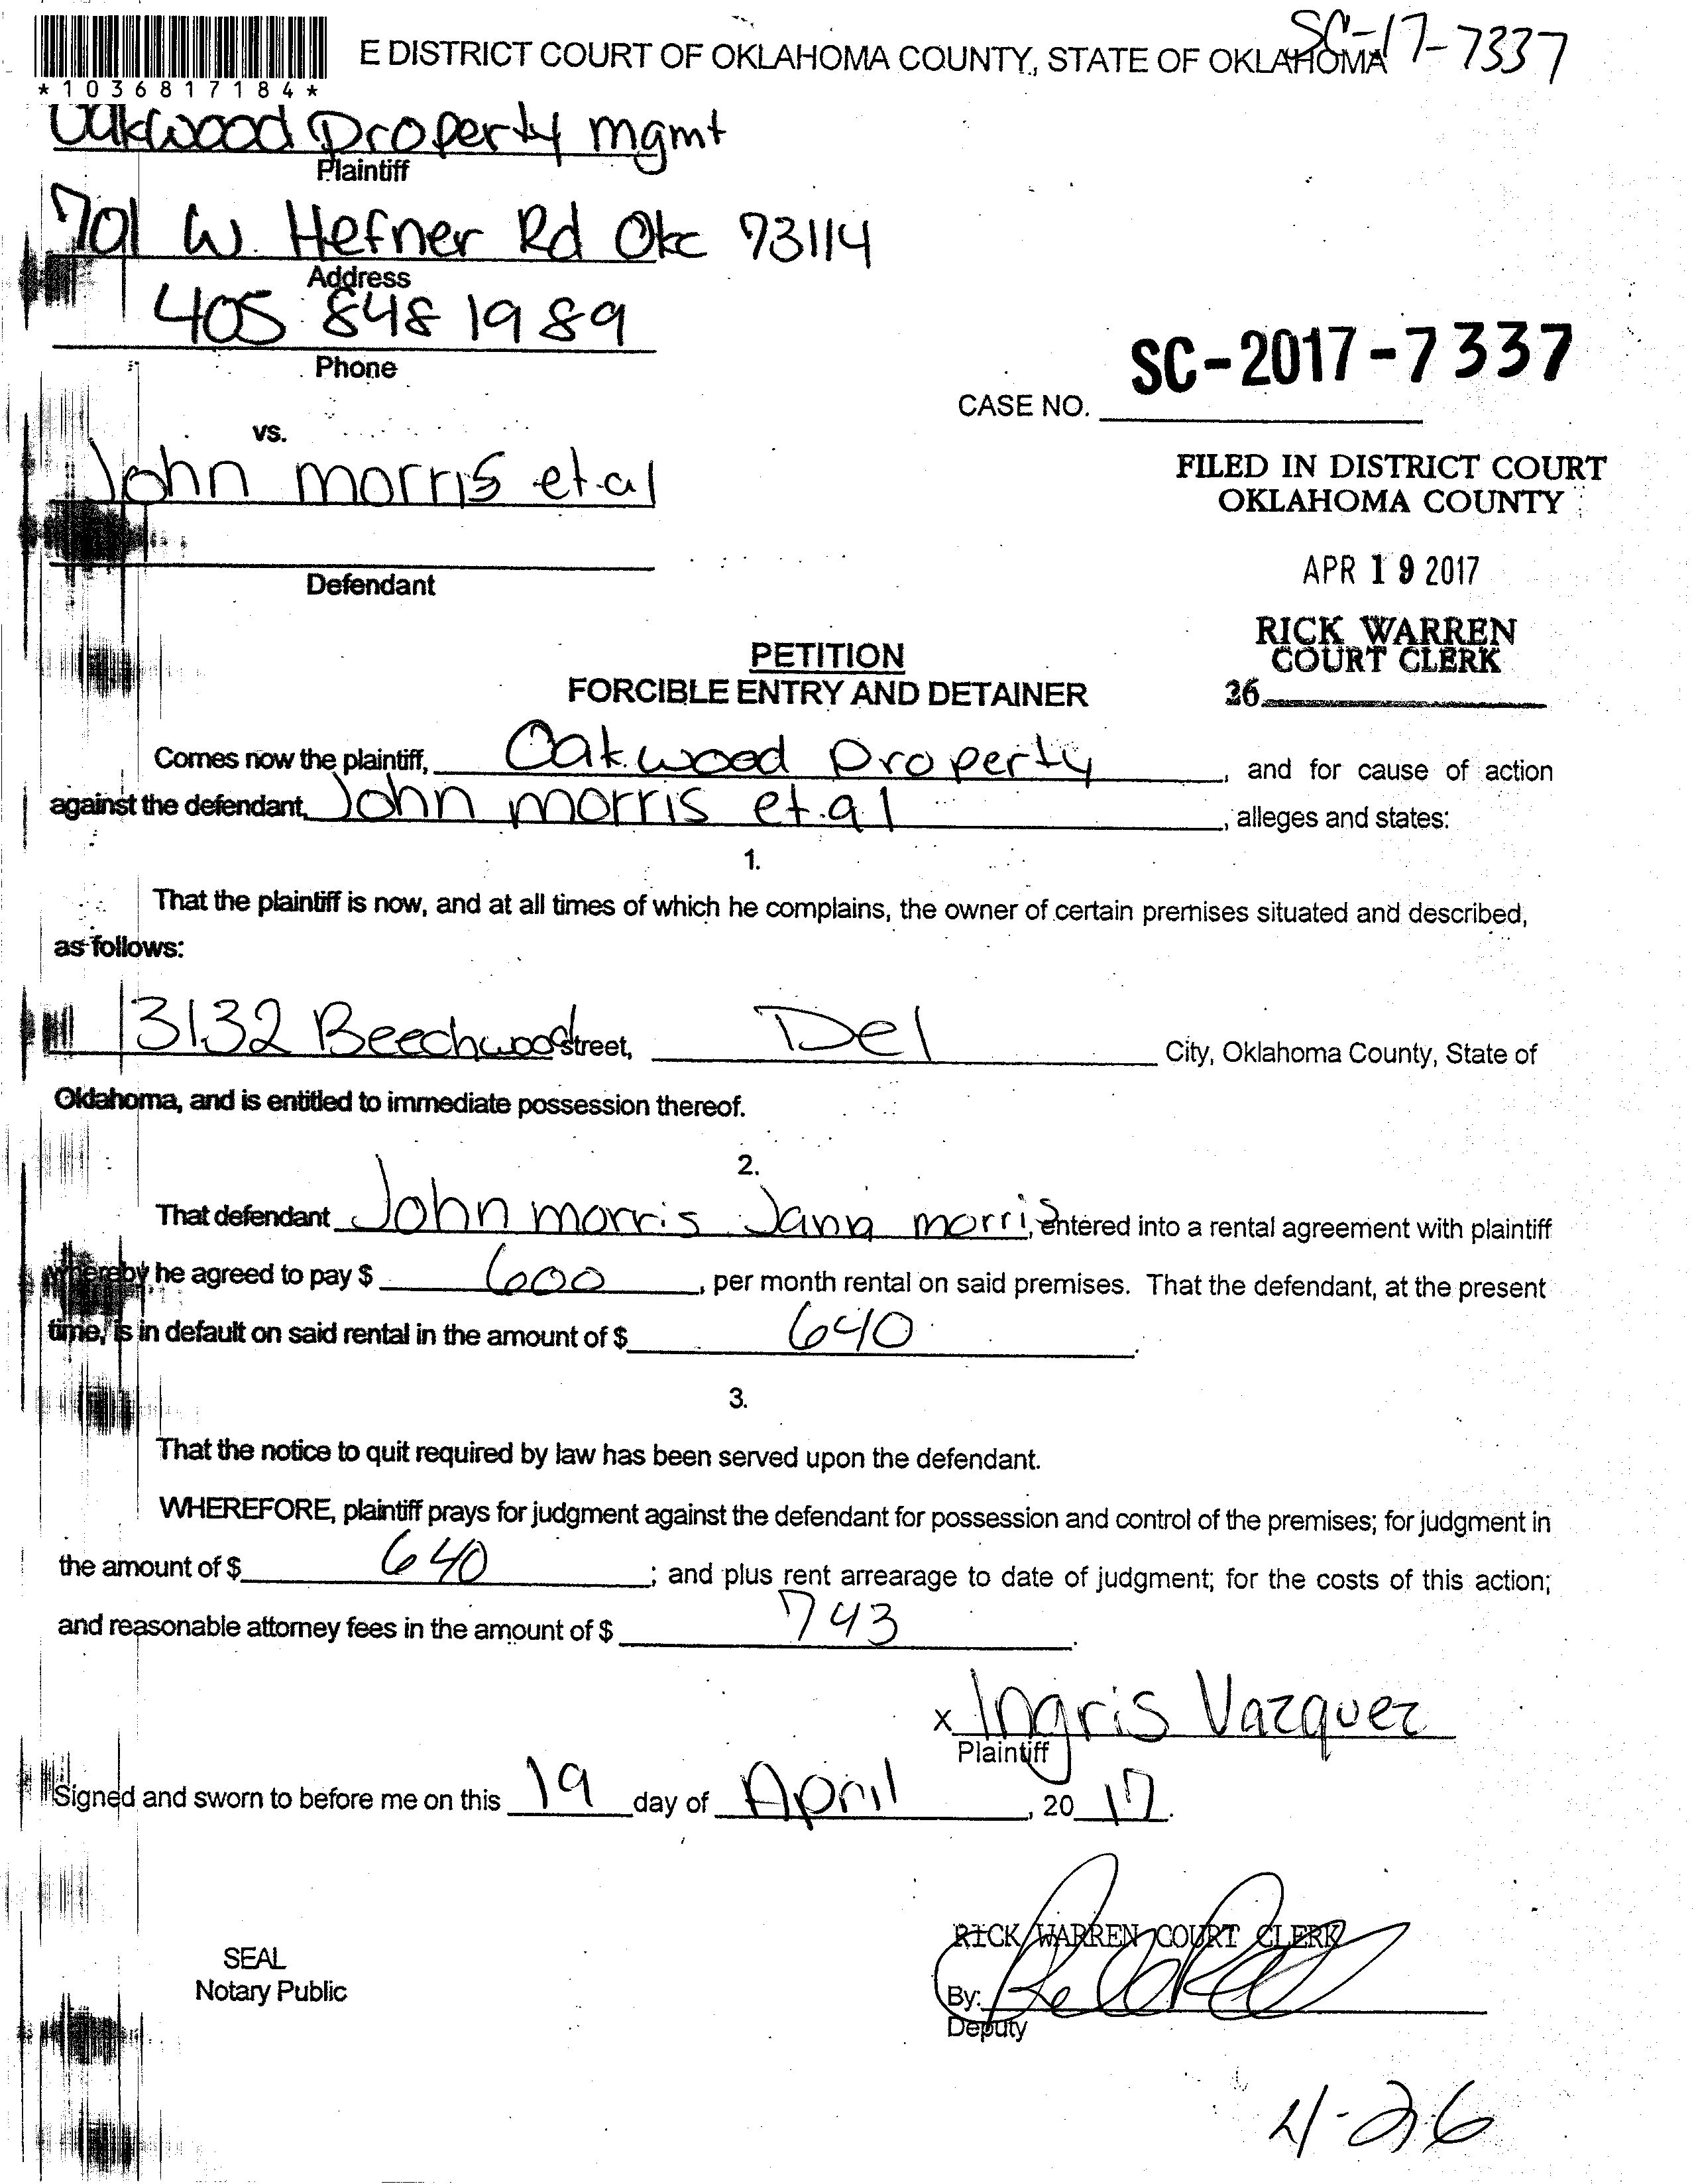 SC-17-7337
E DISTRICT COURT OF OKLAHOMA COUNTY, STATE OF OKLAHOMA
*1036817184*
Oakwood Property mgmt
Plaintiff
701 W. Hefner Rd Okc 73114
Address
405 848 1989
Phone
SC-2017-7337
CASE NO.
vs.
John morris et al
FILED IN DISTRICT COURT
OKLAHOMA COUNTY
APR 19 2017
Defendant
RICK WARREN
COURT CLERK
PETITION
FORCIBLE ENTRY AND DETAINER
36
Comes now the plaintiff, Oakwood Property, and for cause of action
against the defendant, John morris et.al, alleges and states:
1.
That the plaintiff is now, and at all times of which he complains, the owner of certain premises situated and described,
as follows:
3132 Beechwood Street, Del City, Oklahoma County, State of
Oklahoma, and is entitled to immediate possession thereof.
2.
That defendant John morris Jana morris, entered into a rental agreement with plaintiff
whereby he agreed to pay $ 600, per month rental on said premises. That the defendant, at the present
time, is in default on said rental in the amount of $ 640.
3.
That the notice to quit required by law has been served upon the defendant.
WHEREFORE, plaintiff prays for judgment against the defendant for possession and control of the premises; for judgment in
the amount of $ 640; and plus rent arrearage to date of judgment; for the costs of this action;
and reasonable attorney fees in the amount of $ 743.
x Ingris Vazquez
Plaintiff
Signed and sworn to before me on this 19 day of April, 2017.
RICK WARREN COURT CLERK
SEAL
Notary Public
By:
Deputy
4-26